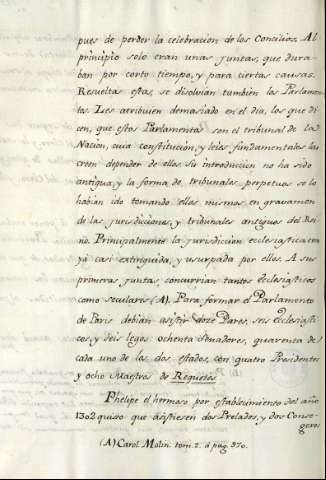 pues de perder la celebracion de los Concilios. Al
principio solo eran unas juntas, que dura-
ban por corto tiempo, y para ciertas causas.
Resueltas estas, se disolvian tambien los Parlamen-
tos. Les atribuien demasiado en el dia, los que di-
cen, que estos Parlamentos son el tribunal de la
Nacion, cuia constitucion, y leies fundamentales las
creen depender de ellos. Su introduccion no ha sido
antigua, y la forma de tribunales perpetuos se lo
habian ido tomando ellos mismos en gravamen
de las jurisdicciones, y tribunales antiguos del Rei-
no. Principalmente la jurisdiccion ecclesiastica era
ya casi extinguida, y usurpada por ellos. A sus
primeras juntas concurrian tantos ecclesiasticos
como seculares (A). Para formar el Parlamento
de Paris debian asistir doze Pares, seis ecclesiasti-
cos, y seis legos: ochenta Senadores, quarenta de
cada uno de los dos estados, con quatro Presidentes
y ocho Maestros de Requetes.
Phelipe el hermoso por establecimiento del año
1302 quiso que asistiesen dos Prelados, y dos Conse-
geros
(A) Carol. Molin. tom. 2. á pag. 970.